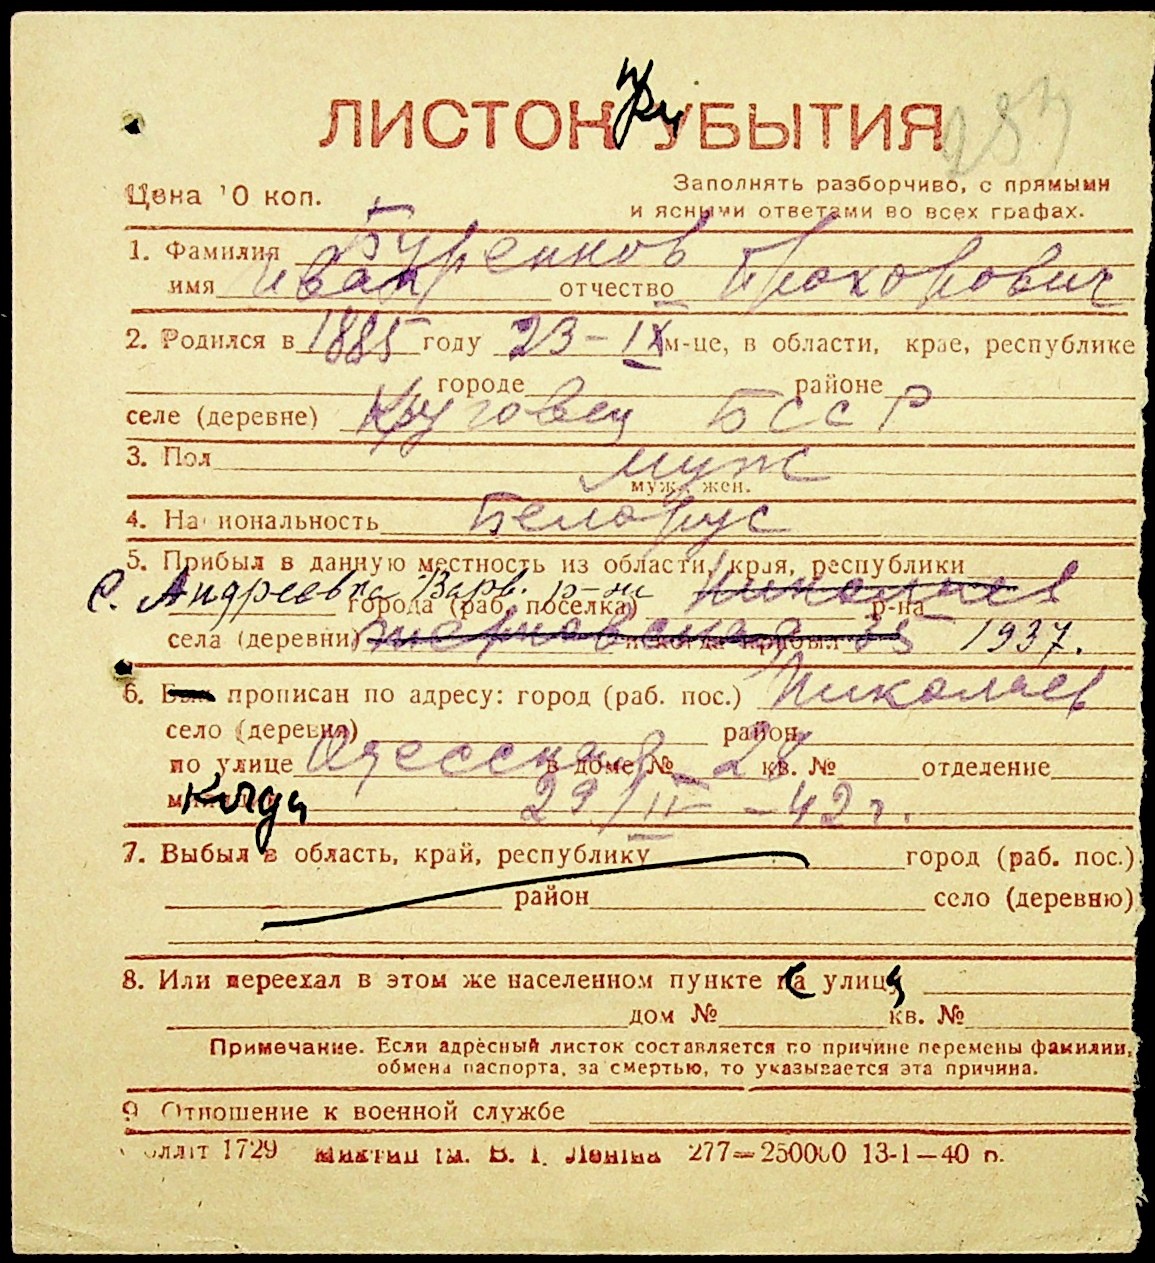 ЛИСТОК при УБЫТИЯ
Цена 10 коп.
Заполнять разборчиво, с прямыми
и ясными ответами во всех графах.
1. Фамилия Буренков
имя Иван отчество Прохорович
2. Родился в 1885 году 23-IX м-це, в области, крае, республике
городе районе
селе (деревне) Круговец БССР
3. Пол муж
муж., жен.
4. Национальность Белорус
5. Прибыл в данную местность из области, края, республики
с. Андреевка Варв. р-на города (раб. поселка) Николаев р-на
села (деревни) и когда прибыл 35 1937.
6. Был прописан по адресу: город (раб. пос.) Николаев
село (деревня) район
по улице Одесская в доме № 28 кв. № отделение
милиции Когда 29/II-42 г.
7. Выбыл в область, край, республику город (раб. пос.)
район село (деревню)
8. Или переехал в этом же населенном пункте с улицы
дом № кв. №
Примечание. Если адресный листок составляется по причине перемены фамилии,
обмена паспорта, за смертью, то указывается эта причина.
9. Отношение к военной службе
1729 ім. В. І. Леніна 277—250000 13-1—40 р.